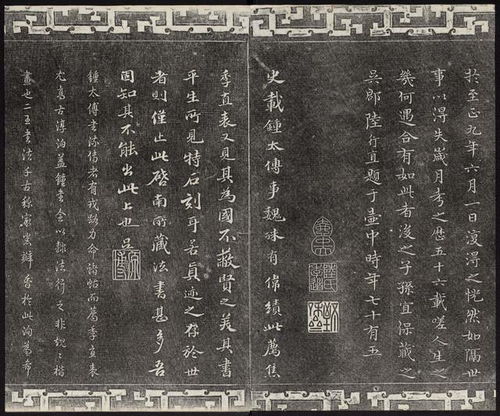 於至正九年六月一日復得之恍然如隔世
事以得失歲月考之歷五十六載嗟人生之
幾何遇合有如此者後之子孫宜保藏之
吳郡陸行直題于壺中時年七十有五
史載鍾太傅事魏殊有偉績此薦焦
季直表又見其為國不蔽賢之美其書
平生所見特石刻耳若真迹之存於世
者則僅止此啓南所藏法書甚多吾
固知其不能出此上也吳
鍾太傅書傳者有戎路力命諸帖而薦季直表
尤真古淳泊蓋鍾書全以隸法行之非規規楷
書也二王書法千古稱宗實瓣香於此洵為希